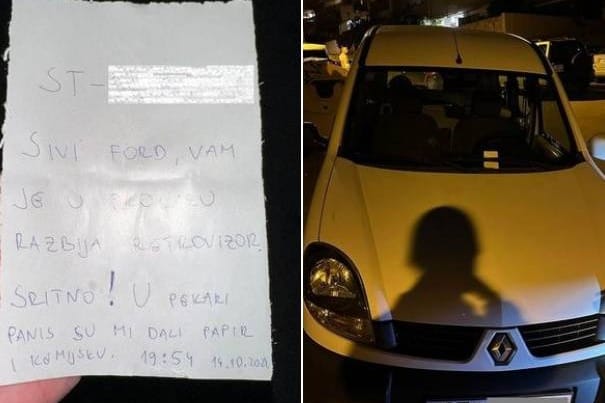 ST-
SIVI FORD, VAM
JE U PROLAZU
RAZBIJA RETROVIZOR.
SRITNO! U PEKARI
PANIS SU MI DALI PAPIR
I KEMIJSKU. 19:54 14.10.2021